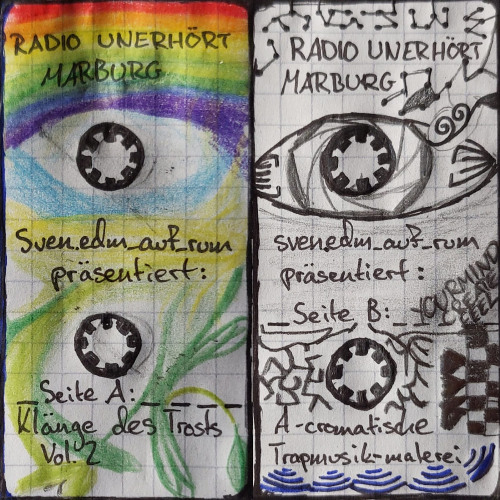 RADIO UNERHÖRT
MARBURG
Sven.edm_auf_rum
präsentiert:
_Seite A:_ _ _ _
Klänge des Trosts
Vol. 2
RADIO UNERHÖRT
MARBURG
sven.edm_auf_rum
präsentiert:
_Seite B:_ _
YOUR MIND
A-cromatische
Trapmusik-malerei